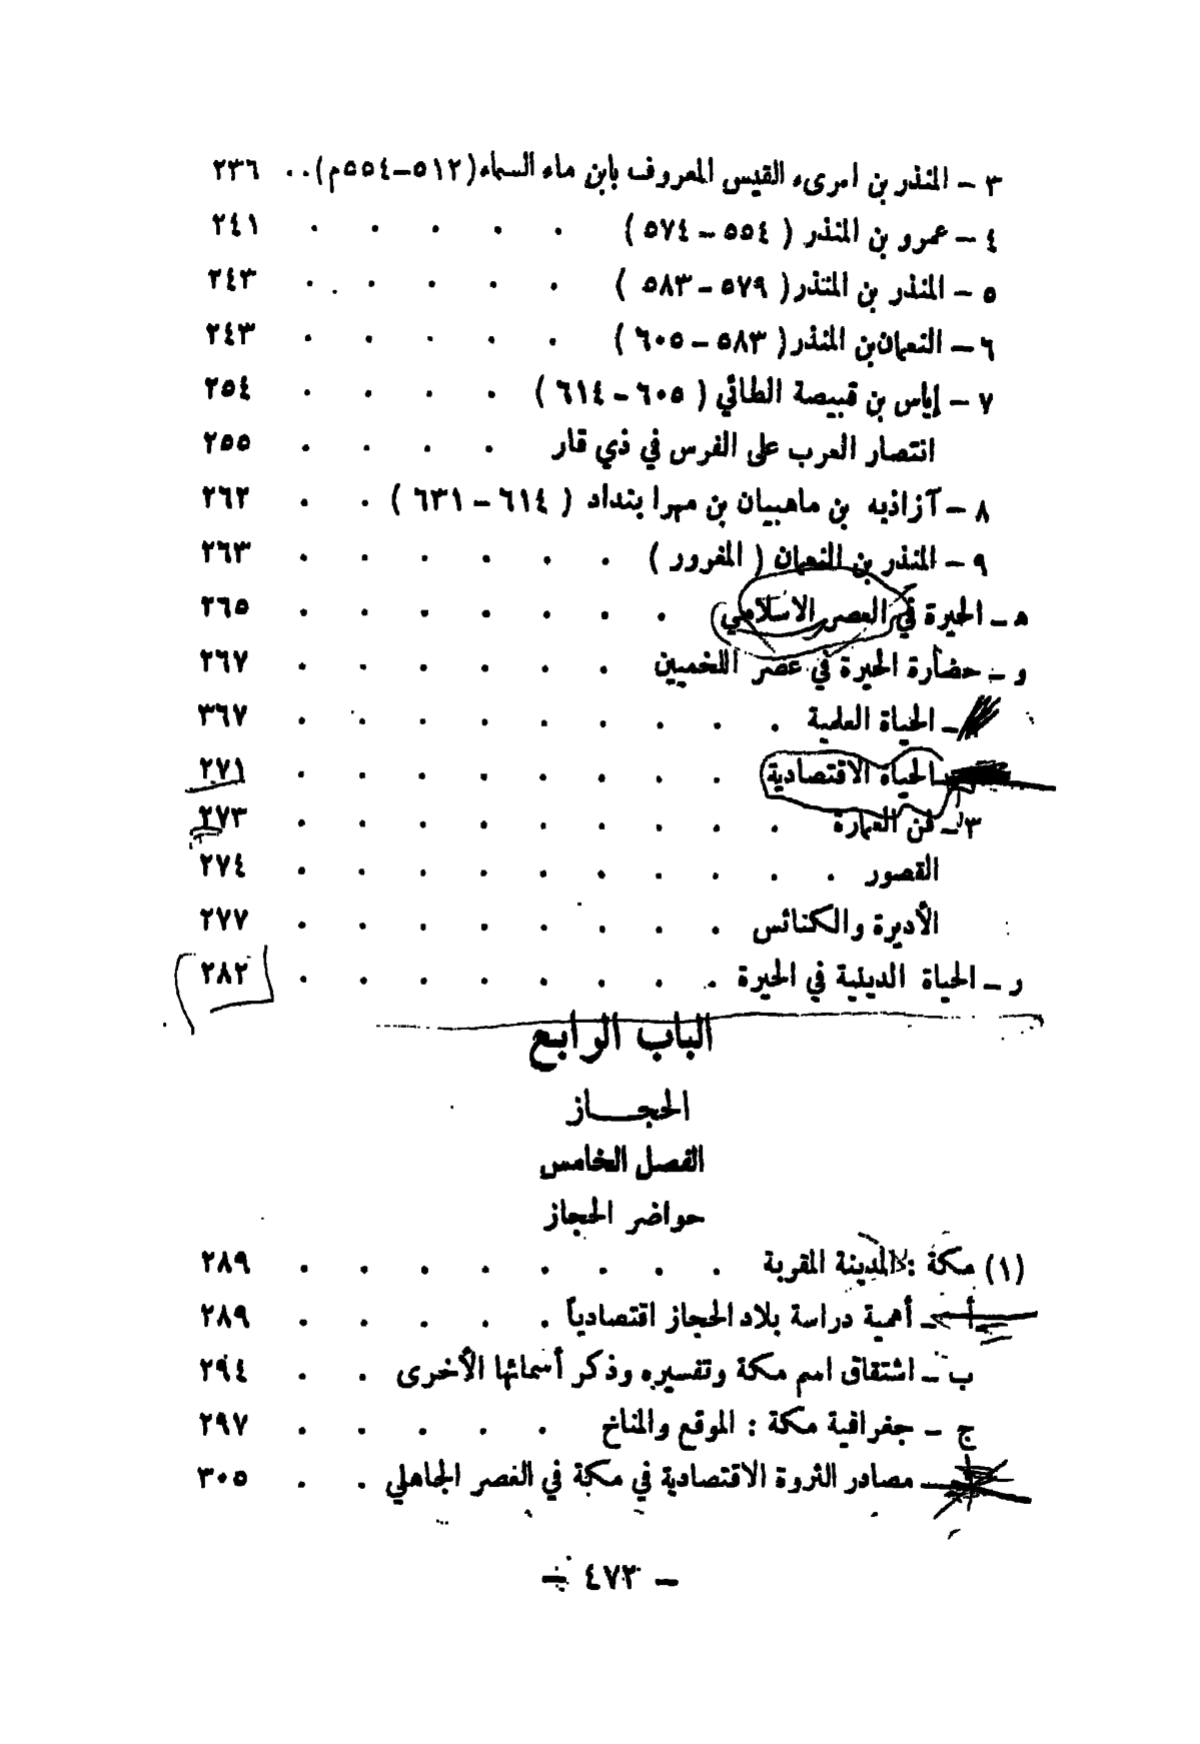 ٣ – المنذر بن امرىء القيس المعروف بابن ماء السماء (٥١٢–٥٥٤م) . . ٢٣٦
٤ – عمرو بن المنذر ( ٥٥٤ – ٥٧٤ ) . . . . . ٢٤١
٥ – المنذر بن المنذر ( ٥٧٩ – ٥٨٣ ) . . . . . ٢٤٣
٦ – النعمان بن المنذر ( ٥٨٣ – ٦٠٥ ) . . . . . ٢٤٣
٧ – إياس بن قبيصة الطائي ( ٦٠٥ – ٦١٤ ) . . . . ٢٥٤
انتصار العرب على الفرس في ذي قار . . . . ٢٥٥
٨ – آزاذبه بن ماهبيان بن مهرا بنداد ( ٦١٤ – ٦٣١ ) . . ٢٦٢
٩ – المنذر بن النعمان ( المغرور ) . . . . . . ٢٦٣
ه – الحيرة في العصر الاسلامي . . . . . . . ٢٦٥
و – حضارة الحيرة في عصر اللخميين . . . . . . ٢٦٧
– الحياة العلمية . . . . . . . . . ٣٦٧
الحياة الاقتصادية . . . . . . . . ٢٧١
٣ – فن العمارة . . . . . . . . . ٢٧٣
القصور . . . . . . . . . . ٢٧٤
الأديرة والكنائس . . . . . . . . ٢٧٧
ر – الحياة الدينية في الحيرة . . . . . . . . ٢٨٢
الباب الرابع
الحجـــاز
الفصل الخامس
حواضر الحجاز
(١) مكة : المدينة المقربة . . . . . . . . ٢٨٩
أ – أهمية دراسة بلاد الحجاز اقتصادياً . . . . . ٢٨٩
ب – اشتقاق اسم مكة وتفسيره وذكر أسمائها الأخرى . . ٢٩٤
ج – جغرافية مكة : الموقع والمناخ . . . . . ٢٩٧
– مصادر الثروة الاقتصادية في مكة في العصر الجاهلي . . ٣٠٥
– ٤٧٣ –